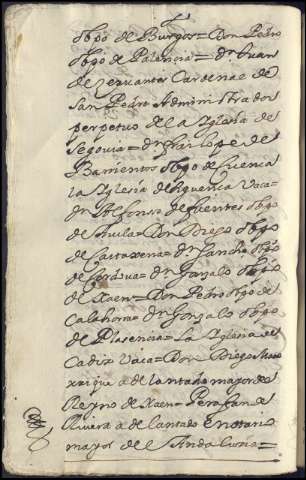 obpo de Burgos = Don Pedro
obpo de Palencia = dn Juan
de Zervantes Cardenal de
San Pedro Administrador
perpetuo de la Yglesia de
Segovia = dn frai Lope de
Barrientos obpo de Cuenca
la Yglesia de Siguenca Vaca =
dn Alfonso de fuentes obpo
de Avila = Don Diego obpo
de Cartaxena = dn Sancho obpo
de Cordova = dn Gonzalo obpo
de Xaen = Don Pedro obpo de
Calahorra = dn Gonzalo obpo
de Plasencia = La Yglesia de
Cadiz Vaca = Don Diego Man
xrique adelantado mayor de
Reyno de Xaen = Perafan de
Rivera adelantado E notario
mayor del Andalucia =